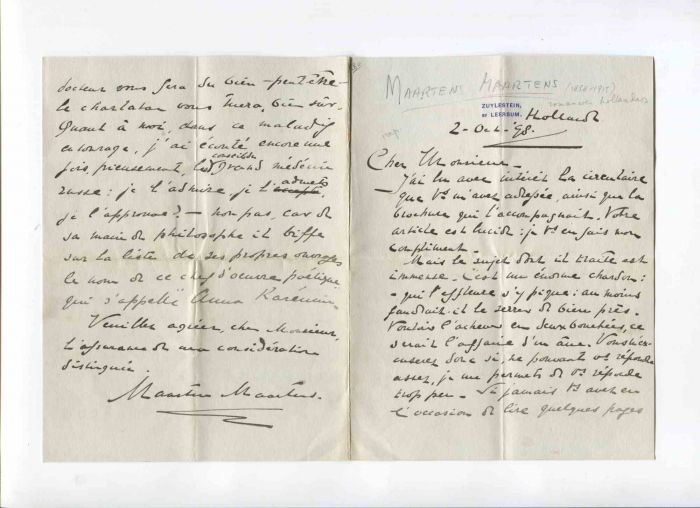 MAARTENS MAARTENS (1858-1915)
romancier hollandais
ZUYLESTEIN,
BY LEERSUM.
Holland
2 - Oct. '98.
Cher Monsieur -
J'ai lu avec intérêt la circulaire
que Vs. m'avez adressée, ainsi que la
brochure qui l'accompagnait. Votre
article est lucide : je Vs. en fais mon
compliment.
Mais le sujet dont il traite est
immense. C'est un énorme chardon :
- qui l'effleure s'y pique : au moins
faudrait-il le serrer de bien près.
Vouloir l'achever en deux bouchées, ce
serait l'affaire d'un âne. Vous m'ex-
cuserez donc si, ne pouvant vs. répondre
assez, je me permets de vs. répondre
trop peu. Si jamais Vs. avez eu
l'occasion de lire quelques pages
docteur vous fera du bien - peut-être -
le charlatan vous tuera, bien sûr.
Quant à moi, dans ce maladif
entourage, j'ai écouté encore une
fois, pieusement, le grand médecin
russe : je l'admire, je l'admets
accepte,
je l'approuve ? - non pas, car de
sa main de philosophe il biffe
sur la liste de ses propres ouvrages
le nom de ce chef d'oeuvre poétique
qui s'appelle Anna Karénine.
Veuillez agréer, cher Monsieur,
l'assurance de ma considération
distinguée.
Maarten Maartens.